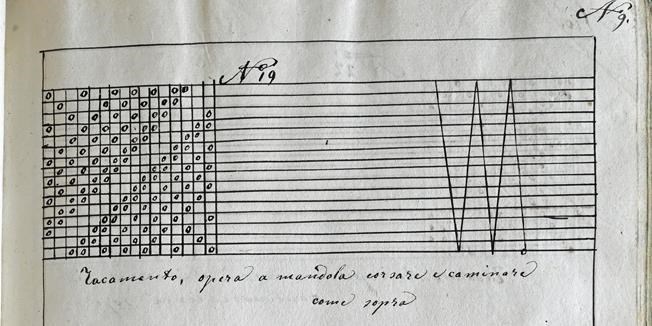 N 9.
N 19
opera a mandola corsare e caminare
come sopra